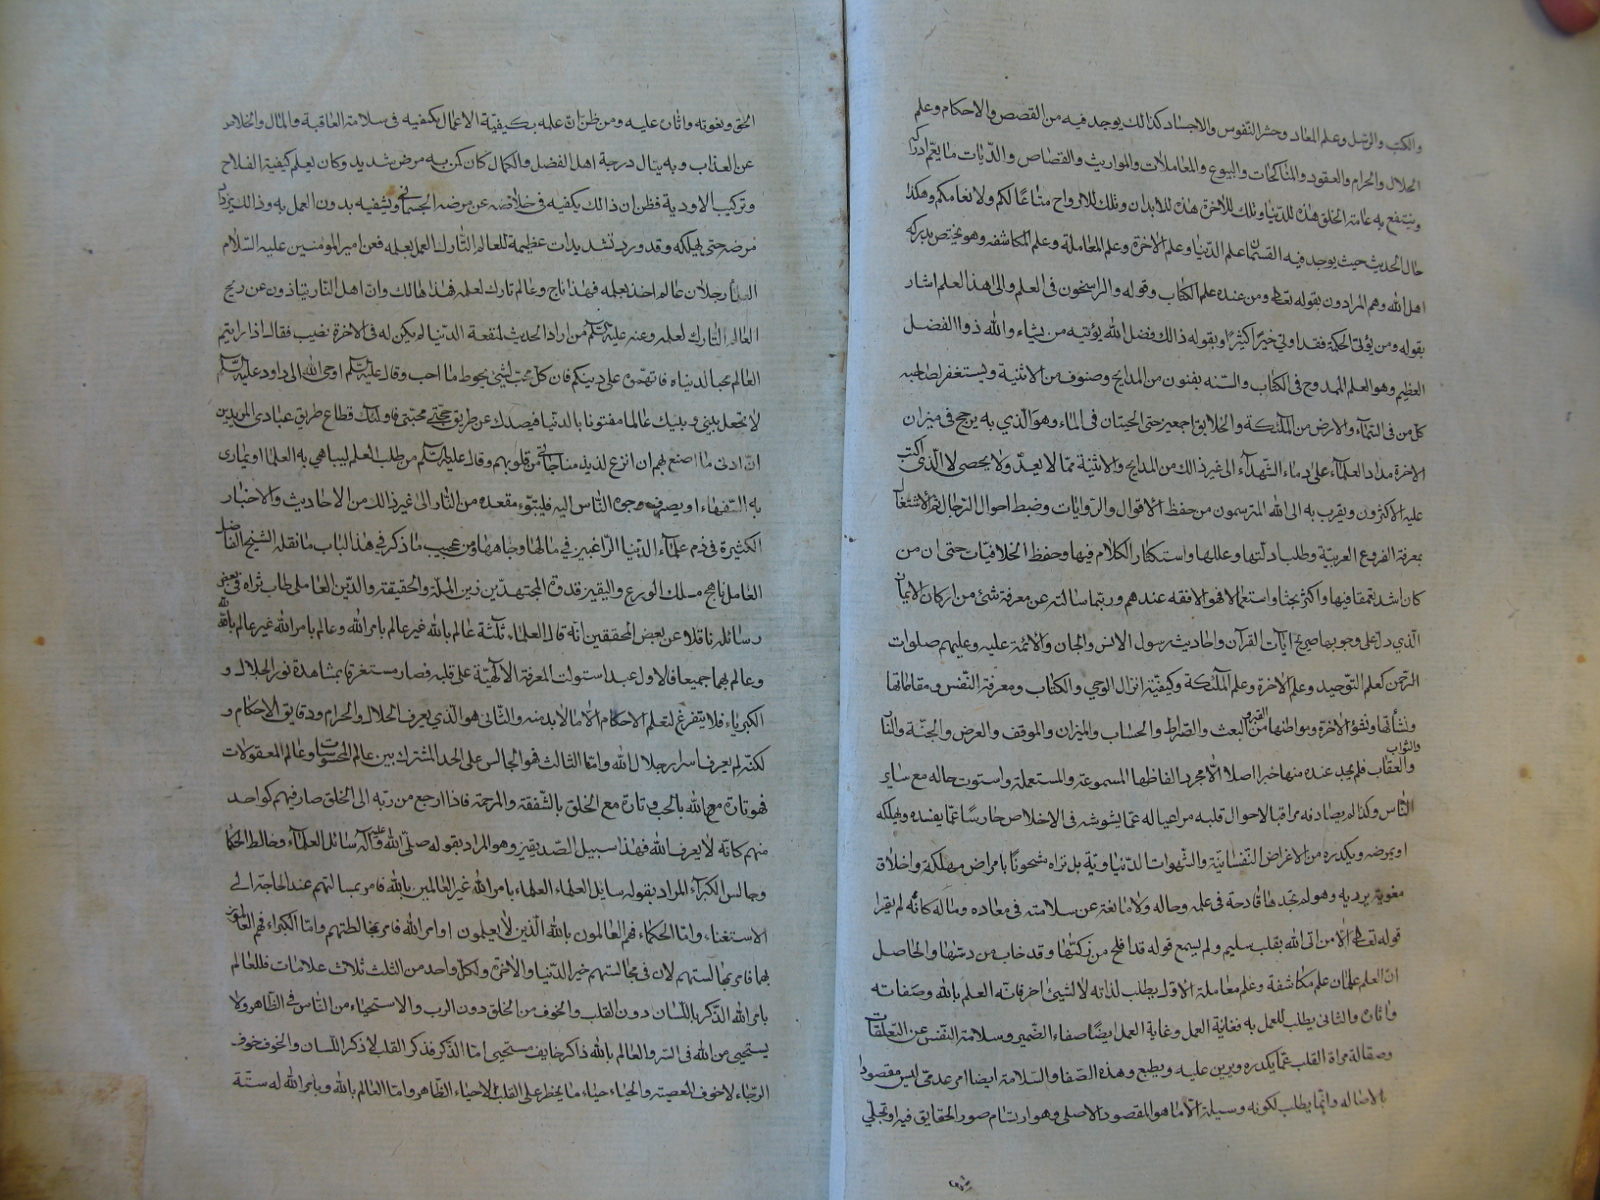 والكتب والرسل وعلم المعاد وحشر النفوس والاجساد كذلك يوجد فيه من القصص والاحكام وعلم
الحلال والحرام والعقود والمناكحات والبيوع والمعاملات والمواريث والقصاص والديات ما يعم
وينتفع به عامة الخلق هذه للدنيا وتلك للاخرة هذه للابدان وتلك للارواح متاعا لكم ولانعامكم وهكذا
حال الحديث حيث يوجد فيه القسمان علم الدنيا وعلم الاخرة وعلم المعاملة وعلم المكاشفة وهو يختص بدركه
اهل الله وهم المرادون بقوله تعالى ومن عنده علم الكتاب وقوله والراسخون في العلم والى هذا العلم اشار
بقوله ومن يؤتى الحكمة فقد اوتي خيرا كثيرا وبقوله ذالك فضل الله يؤتيه من يشاء والله ذوا الفضل
العظيم وهو العلم الممدوح في الكتاب والسنه بفنون من المدايح وصنوف من الاثنية ويستغفر لصاحبه
كل من في السماء والارض من الملئكة والخلايق اجمعين حتى الحيتان في الماء وهو الذي به يرجح في ميزان
الاخرة مداد العلماء على دماء الشهداء الى غير ذالك من المدايح والاثنية مما لا يعد ولا يحصى لا الذي اكتب
عليه الاكثرون ويقرب به الى الله المترسمون من حفظ الاقوال والروايات وضبط احوال الرجال ثم الاشتغال
بمعرفة الفروع الغريبة وطلب ادلتها وعللها واستكثار الكلام فيها وحفظ الخلافيات حتى ان من
كان اشد تعمقا فيها واكثر بحثا واستعمالا فهو الافقه عندهم وربما سالته عن معرفة شئ من اركان الايمان
الذي دل على وجوبها صريح ايات القرآن واحاديث رسول الانس والجان والائمة عليه وعليهم صلوات
الرحمن كعلم التوحيد وعلم الاخرة وعلم الملئكة وكيفية انزال الوحي والكتاب ومعرفة النفس ومقاماتها
ونشأتها ونشؤ الاخرة ومواطنها من القبر والبعث والصراط والحساب والميزان والموقف والعرض والجنة والنار
والثواب والعقاب فلم يجد عنده منها خبرا اصلا الا مجرد الفاظها المسموعة والمستعملة واستوت حاله مع ساير
الناس وكذا لم يصادفه مراقبا لاحوال قلبه مراعيا له عما يشوشه في الاخلاص حارسا عما يفسده ويهلكه
او يمرضه ويكدره من الاغراض النفسانية والشهوات الدنياوية بل تراه مشحونا بامراض مهلكة واخلاق
مغوية يرديه وهو لم يجدها قادحة في علمه وحاله ولا مانعة عن سلامته في معاده وماله كانه لم يقرا
قوله تعالى الا من اتى الله بقلب سليم ولم يسمع قوله قد افلح من زكيها وقد خاب من دسيها والحاصل
ان العلم علمان علم مكاشفة وعلم معاملة الاول يطلب لذاته لا لشيئ اخر فانه العلم بالله وصفاته
واثاره والثاني يطلب للعمل به فغاية العمل وغاية العمل ايضا صفاء الضمير وسلامة النفس عن التعلقات
وصقالة مراة القلب عما يكدره ويرين عليه ويطبع وهذه الصفا والسلامة ايضا امر عدمي ليس مقصودا
بالاصاله وانما يطلب لكونه وسيلة الا ما هو المقصود الاصلي وهو ارتسام صور الحقايق فيه وتجلي
الحق ونعوته واثاره عليه ومن ظن ان علمه بكيفية الاعمال يكفيه في سلامة العاقبة والمال والخلاص
عن العذاب وبه ينال درجة اهل الفضل والكمال كان كمن به مرض شديد وكان يعلم كيفية الفلاح
وتركيب الاودية فظن ان ذالك يكفيه في خلاصه عن مرضه الجسماني ويشفيه بدون العمل به وذالك يزيد
مرضه حتى يهلكه وقد ورد تشديدات عظيمة للعالم التارك العمل بعلمه فعن امير المومنين عليه السلام
العلماء رجلان عالم اخذ بعلمه فهذا ناج وعالم تارك لعلمه فهذا هالك وان اهل النار يتاذون عن ريح
العالم التارك لعلمه وعنه عليه السلم من اراد الحديث لمنفعة الدنيا لم يكن له في الاخرة نصيب فقال اذا رايتم
العالم محبا لدنياه فاتهموه على دينكم فان كل محب لشئ يحوط ما احب وقال عليه السلم اوحى الله الى داود عليه السلم
لا تجعل بيني وبينك عالما مفتونا بالدنيا فيصدك عن طريق محبتي فاولئك قطاع طريق عبادي المريدين
ان ادنى ما اصنع بهم ان انزع لذيذ مناجاتي من قلوبهم وقال عليه السلم من طلب العلم ليباهي به العلماء او يمارى
به السفهاء او يصرف وجوه الناس اليه فليتبوء مقعده من النار الى غير ذالك من الاحاديث والاخبار
الكثيرة في ذم علماء الدنيا الراغبين في مالها وجاهها ومن عجيب ما ذكر في هذا الباب ما نقله الشيخ الفاضل
العامل ناهج مسلك الورع واليقين قدوة المجتهدين زين الملة والحقيقة والدين العاملي طاب ثراه في بعض
رسائله ناقلا عن بعض المحققين انه قال العلماء ثلثة عالم بالله غير عالم بامر الله وعالم بامر الله غير عالم بالله
وعالم بهما جميعا فالاول عبد استولت المعرفة الالهية على قلبه فصار مستغرقا بمشاهدة نور الجلال و
الكبرياء فلا يتفرغ لتعلم الاحكام الا ما لابد منه والثاني هو الذي يعرف الحلال والحرام ودقايق الاحكام و
لكنه لم يعرف اسرار جلال الله واما الثالث فهو الجالس على الحد المشترك بين عالم المحسوسات وعالم المعقولات
فهو تارة مع الله بالحب وتارة مع الخلق بالشفقة والمرحمة فاذا ارجع من ربه الى الخلق صار فيهم كواحد
منهم كانه لا يعرف الله فهذا سبيل الصديقين وهو المراد بقوله صلى الله عليه وآله سائل العلماء وخالط الحكماء
وجالس الكبراء المراد بقوله سايل العلماء العلماء بامر الله غير العالمين بالله فامر بمسالتهم عند الحاجة الى
الاستغناء واما الحكماء فهم العالمون بالله الذين لا يعلمون اوامر الله فامر بمخالطتهم واما الكبراء فهم العالمون
بهما فامر بمجالستهم لان في مجالستهم خير الدنيا والاخرة ولكل واحد من الثلث ثلاث علامات فللعالم
بامر الله الذكر باللسان دون القلب والخوف من الخلق دون الرب والاستحياء من الناس في الظاهر ولا
يستحيى من الله في السر والعالم بالله ذاكر خايف مستحيى اما الذكر فذكر القلب لا ذكر اللسان والخوف خوف
الرجاء لا خوف المعصيته والحياء حياء ما يخطر على القلب لا حياء الظاهر واما العالم بالله وبامر الله له ستة